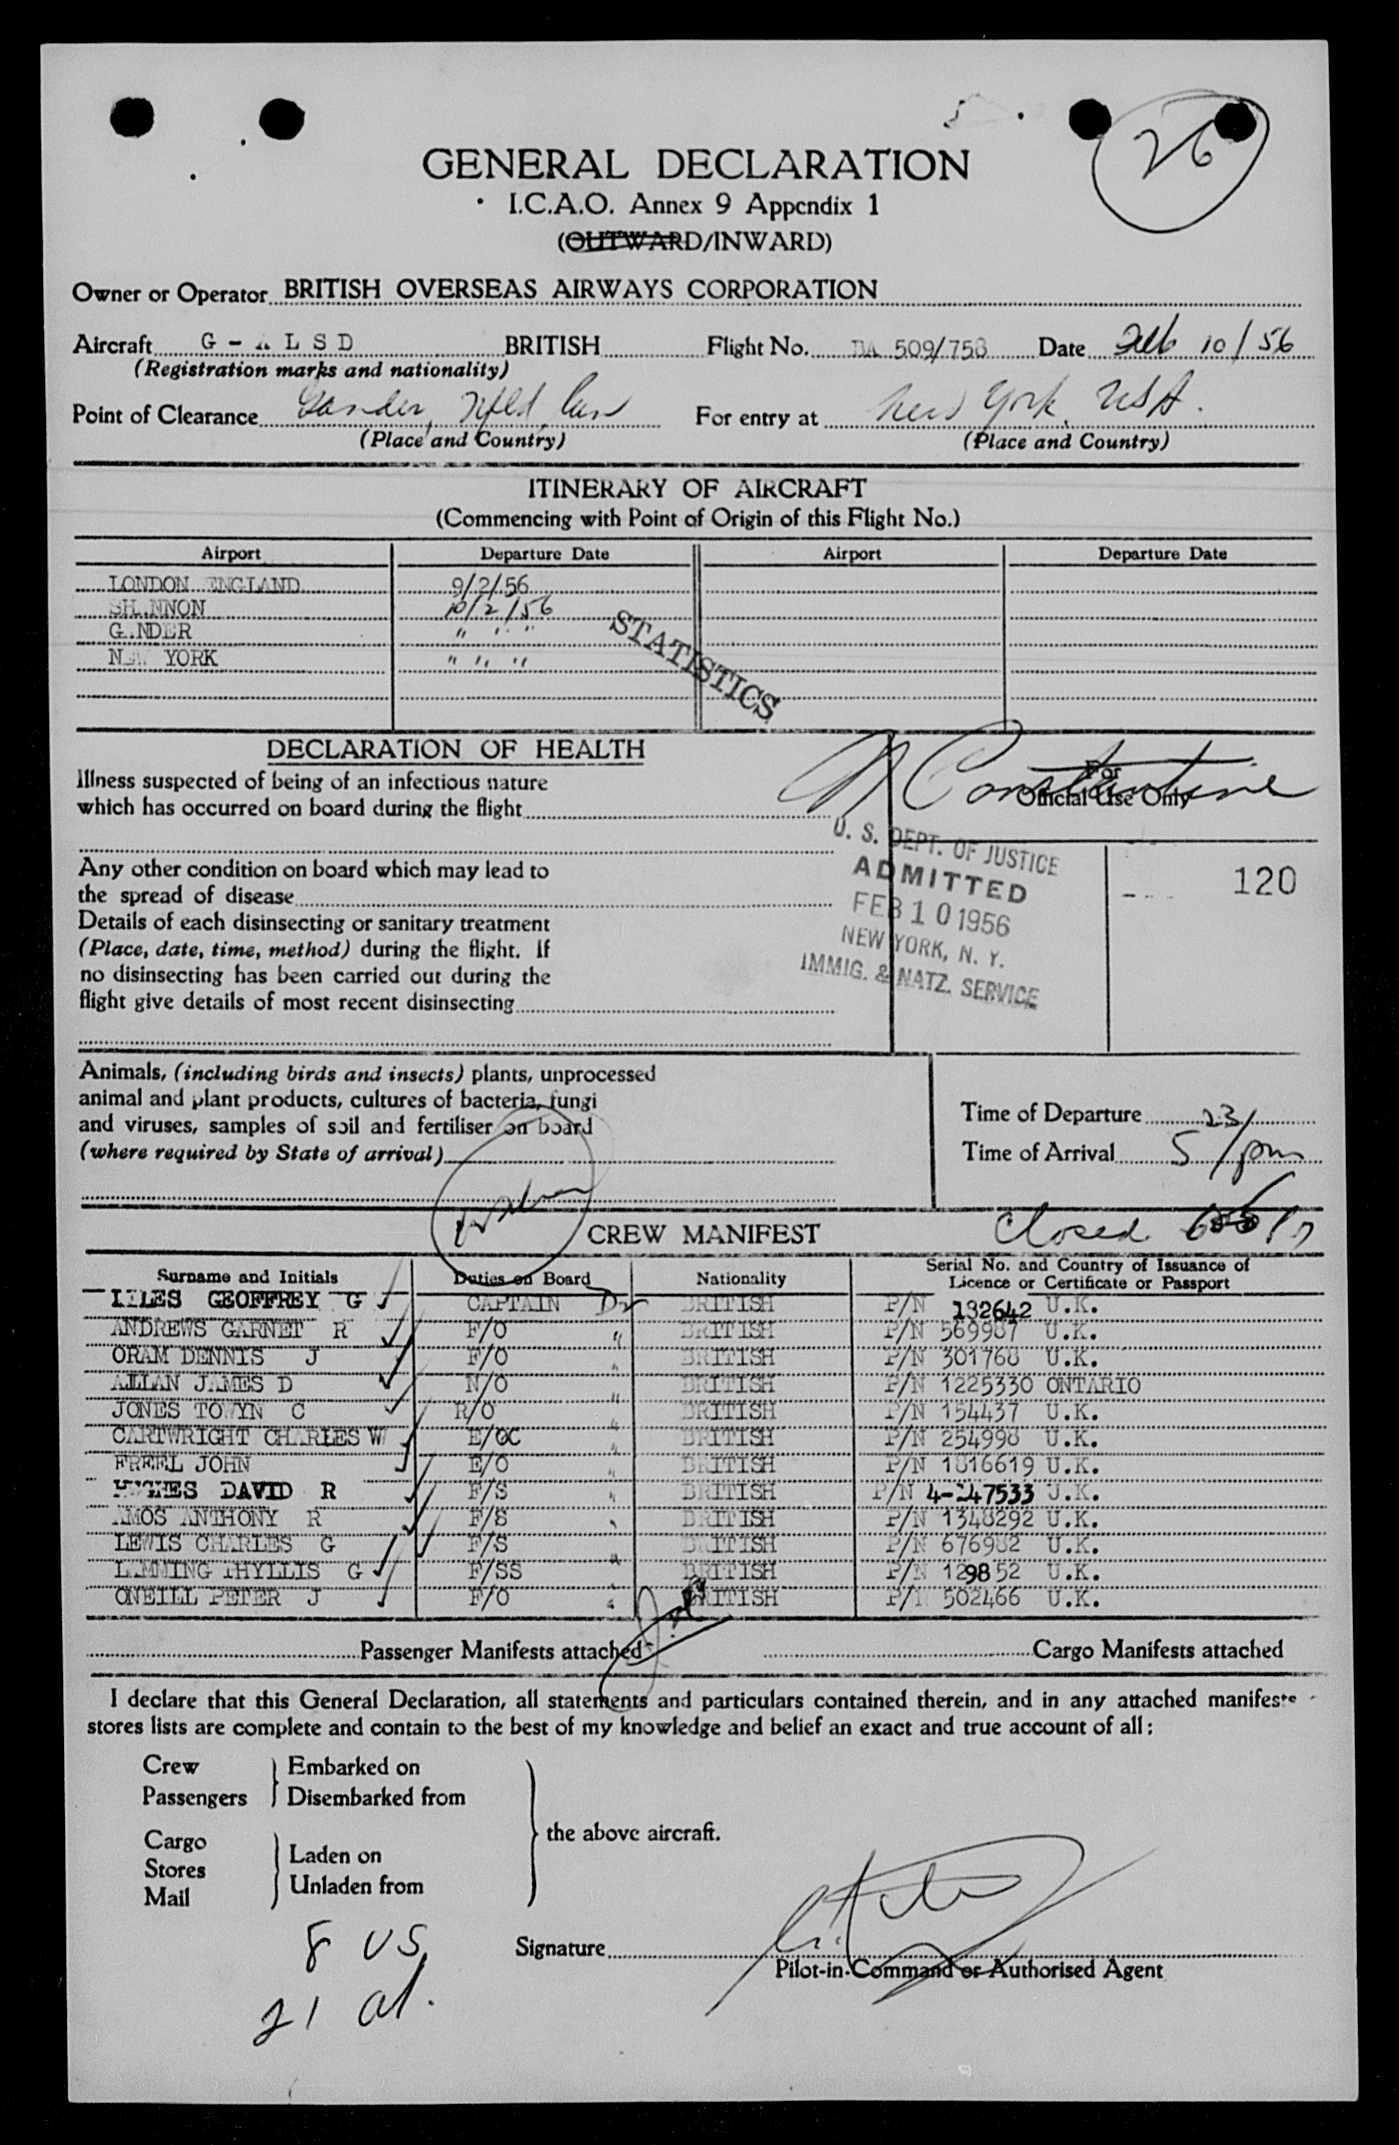 26
GENERAL DECLARATION
I.C.A.O. Annex 9 Appendix 1
(OUTWARD/INWARD)
Owner or Operator BRITISH OVERSEAS AIRWAYS CORPORATION
Aircraft G - A L S D BRITISH Flight No. BA 509/758 Date Feb 10/56
(Registration marks and nationality)
Point of Clearance Gander, Nfld Can For entry at New York, USA.
(Place and Country) (Place and Country)
ITINERARY OF AIRCRAFT
(Commencing with Point of Origin of this Flight No.)
Airport Departure Date Airport Departure Date
LONDON ENGLAND 9/2/56
SHANNON 10/2/56
GANDER " " "
NEW YORK " " "
STATISTICS
DECLARATION OF HEALTH
Illness suspected of being of an infectious nature
which has occurred on board during the flight
Constantine
For
Official Use Only
Any other condition on board which may lead to
the spread of disease
Details of each disinsecting or sanitary treatment
(Place, date, time, method) during the flight. If
no disinsecting has been carried out during the
flight give details of most recent disinsecting
U. S. DEPT. OF JUSTICE
ADMITTED
FEB 10 1956
NEW YORK, N. Y.
IMMIG. & NATZ. SERVICE
120
Animals, (including birds and insects) plants, unprocessed
animal and plant products, cultures of bacteria, fungi
and viruses, samples of soil and fertiliser on board
(where required by State of arrival)
Time of Departure 23/
Time of Arrival 5/pm
Closed
CREW MANIFEST
Surname and Initials Duties on Board Nationality Serial No. and Country of Issuance of
Licence or Certificate or Passport
LILES GEOFFREY G CAPTAIN BRITISH P/N 132642 U.K.
ANDREWS GARNET R F/O " BRITISH P/N 569987 U.K.
ORAM DENNIS J F/O " BRITISH P/N 301768 U.K.
ALLAN JAMES D N/O BRITISH P/N 1225330 ONTARIO
JONES TOWYN C R/O " BRITISH P/N 154437 U.K.
CARTWRIGHT CHARLES W E/OC " BRITISH P/N 254998 U.K.
FREEL JOHN E/O " BRITISH P/N 1816619 U.K.
HUGHES DAVID R F/S " BRITISH P/N 4-247533 U.K.
AMOS ANTHONY R F/S " BRITISH P/N 1348292 U.K.
LEWIS CHARLES G F/S BRITISH P/N 676982 U.K.
LEMMING PHYLLIS G F/SS " BRITISH P/N 129852 U.K.
ONEILL PETER J F/O " BRITISH P/N 502466 U.K.
Passenger Manifests attached Cargo Manifests attached
I declare that this General Declaration, all statements and particulars contained therein, and in any attached manifests
stores lists are complete and contain to the best of my knowledge and belief an exact and true account of all:
Crew Embarked on
Passengers Disembarked from
the above aircraft.
Cargo
Stores Laden on
Mail Unladen from
8 US
21 al.
Signature
Pilot-in-Command or Authorised Agent